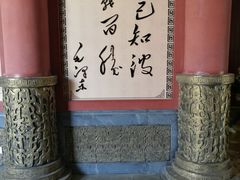 己知彼
战百胜
毛泽东